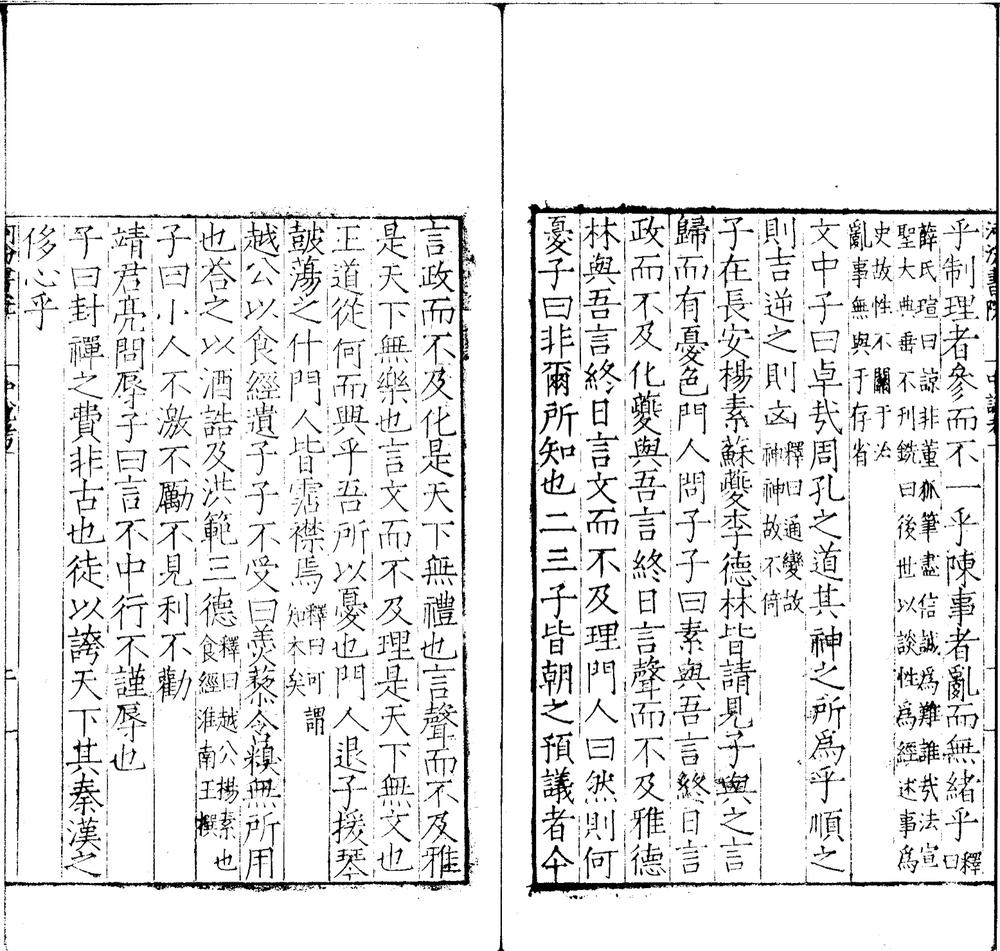 乎制理者參而不一乎陳事者亂而無緒乎釋曰
薛氏瑄曰諒非董狐筆盡信誠為難誰㢤法宣
聖大典垂不刊銑曰後世以談性為經述事為
史故性不關于治
亂事無與于存省
文中子曰卓㢤周孔之道其神之所為乎順之
則吉逆之則凶釋曰通變故
神神故不倚
子在長安楊素蘇夔李德林皆請見子與之言
歸而有憂色門人問子子曰素與吾言終日言
政而不及化夔與吾言終日言聲而不及雅德
林與吾言終日言文而不及理門人曰然則何
憂子曰非爾所知也二三子皆朝之預議者今
言政而不及化是天下無禮也言聲而不及雅
是天下無樂也言文而不及理是天下無文也
王道從何而興乎吾所以憂也門人退子援琴
鼓蕩之什門人皆霑襟焉釋曰可謂
知本矣
越公以食經遺子子不受曰羹藜含糗無所用
也荅之以酒誥及洪範三德釋曰越公楊素也
食經淮南王撰
子曰小人不激不勵不見利不勸
靖君亮問辱子曰言不中行不謹辱也
子曰封禪之費非古也徒以誇天下其秦漢之
侈心乎